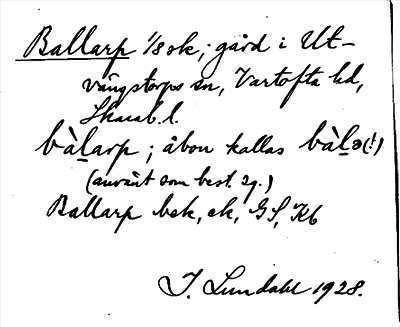 Ballarp 1/8 sk; gård i Ut-
vängstorps sn, Vartofta hd,
Skarab. l.
bàlarp; åbon kallas bàlə(!)
(använt som best. sg.)
Ballarp bek, ek, GS, Kb
J. Lundahl 1928.